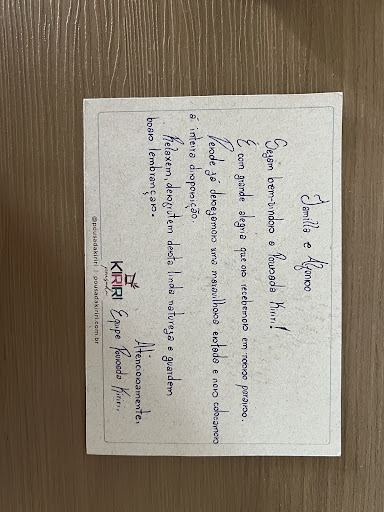 Jamilla e Afonso
Sejam bem-vindos a Pousada Kiriri!
É com grande alegria que os recebemos em nosso paraíso.
Desde já desejamos uma maravilhosa estada e nos colocamos
á inteira disposição.
Relaxem, desfrutem desta linda natureza e guardem
boas lembranças.
Atenciosamente,
Equipe Pousada Kiriri.
KIRIRI
pousada
@pousadakiriri | pousadakiriri.com.br